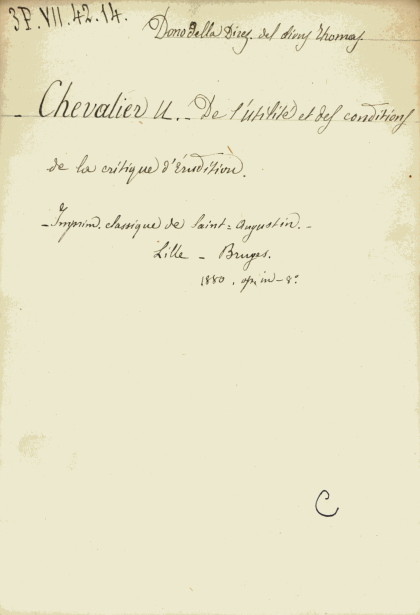 3P.VII.42.14.
Dono della Direz. del divus Thomas
- Chevalier U. - De l'utilité et des conditions
de la critique d'érudition.
- Imprim. classique de Saint=Augustin. -
Lille - Bruges.
1880. op. in-8º
C